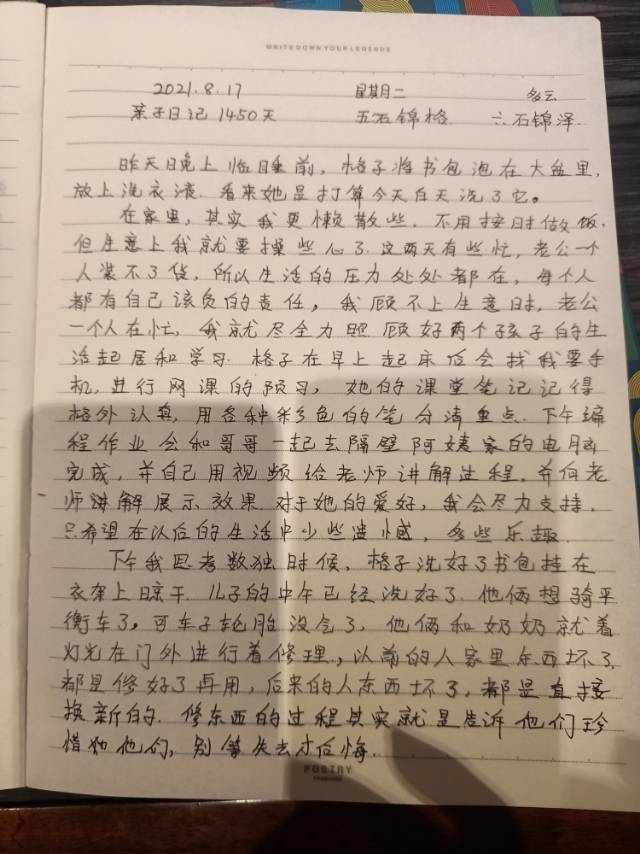 WRITE DOWN YOUR LEGENDS
2021.8.17 星期二 多云
亲子日记1450天 五石锦格 六石锦泽.
昨天晚上临睡前,格子将书包泡在大盆里,
放上洗衣液.看来她是打算今天白天洗了它。
在家里,其实我更懒散些.不用按时做饭,
但生意上我就要操些心了.这两天有些忙,老公一个
人装不了货,所以生活的压力处处都在,每个人
都有自己该负的责任,我顾不上生意时,老公
一个人在忙,我就尽全力照顾好两个孩子的生
活起居和学习.格子在早上起床后会找我要手
机,进行网课的预习,她的课堂笔记记得
格外认真,用各种彩色的笔分清重点.下午编
程作业会和哥哥一起去隔壁阿姨家的电脑
完成,并自己用视频给老师讲解过程,并向老
师讲解展示效果.对于她的爱好,我会尽力支持,
只希望在以后的生活中少些遗憾,多些乐趣.
下午我思考数独时候,格子洗好了书包挂在
衣架上晾干.儿子的中午已经洗好了.他俩想骑平
衡车了,可车子轮胎没气了,他俩和奶奶就着
灯光在门外进行着修理.,以前的人家里东西坏了,
都是修好了再用,后来的人东西坏了,都是直接
换新的.修东西的过程其实就是告诉他们珍
惜如他们,别等失去才后悔.
POETRY